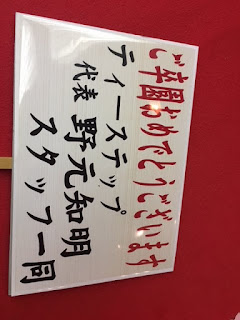 ご卒園おめでとうございます
ティーステップ
代表 野元知明
スタッフ一同